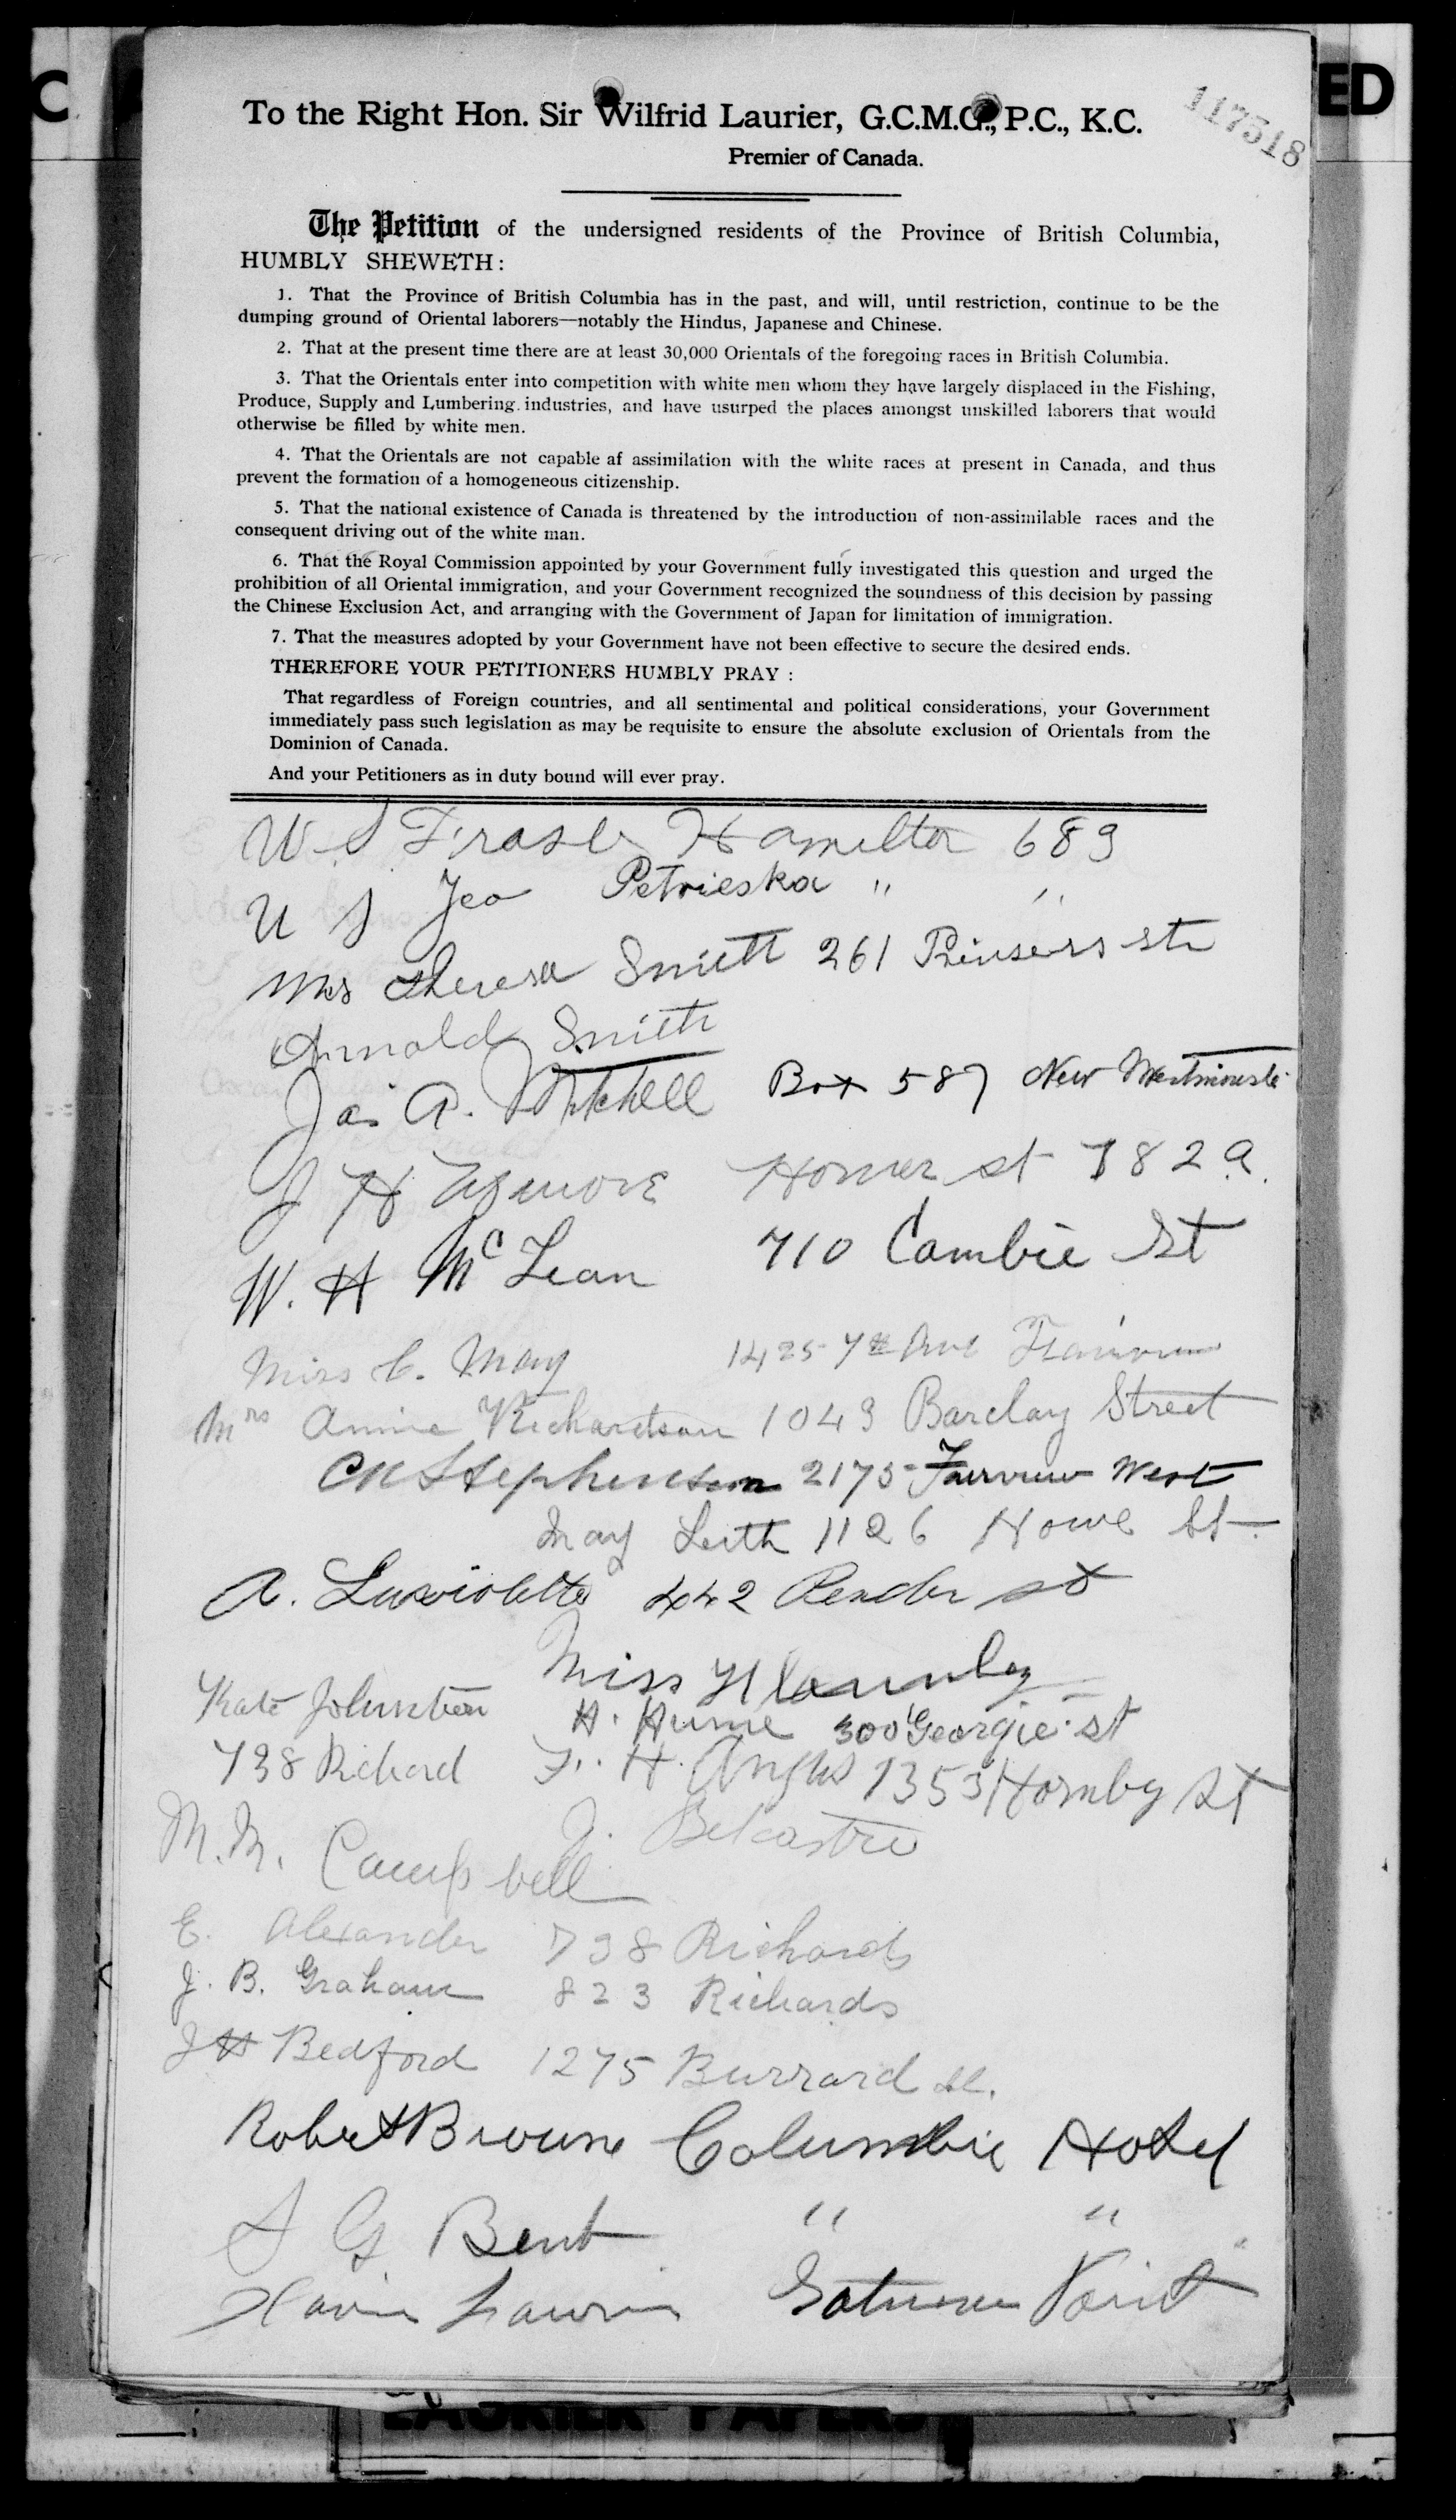 C
ED
To the Right Hon. Sir Wilfrid Laurier, G.C.M.G., P.C., K.C.
117518
Premier of Canada.
The Petition of the undersigned residents of the Province of British Columbia,
HUMBLY SHEWETH:
1. That the Province of British Columbia has in the past, and will, until restriction, continue to be the
dumping ground of Oriental laborers—notably the Hindus, Japanese and Chinese.
2. That at the present time there are at least 30,000 Orientals of the foregoing races in British Columbia.
3. That the Orientals enter into competition with white men whom they have largely displaced in the Fishing,
Produce, Supply and Lumbering industries, and have usurped the places amongst unskilled laborers that would
otherwise be filled by white men.
4. That the Orientals are not capable af assimilation with the white races at present in Canada, and thus
prevent the formation of a homogeneous citizenship.
5. That the national existence of Canada is threatened by the introduction of non-assimilable races and the
consequent driving out of the white man.
6. That the Royal Commission appointed by your Government fully investigated this question and urged the
prohibition of all Oriental immigration, and your Government recognized the soundness of this decision by passing
the Chinese Exclusion Act, and arranging with the Government of Japan for limitation of immigration.
7. That the measures adopted by your Government have not been effective to secure the desired ends.
THEREFORE YOUR PETITIONERS HUMBLY PRAY :
That regardless of Foreign countries, and all sentimental and political considerations, your Government
immediately pass such legislation as may be requisite to ensure the absolute exclusion of Orientals from the
Dominion of Canada.
And your Petitioners as in duty bound will ever pray.
W S Fraser Hamilton 689
Petrieska " "
Mrs Theresa Smith 261 str
Arnold Smith
Jas A. Mitchell Box 587 New
J H Homer st 782a.
W. H McLean 710 Cambie St
Miss C. May 1425 7th Ave
Mrs Annie Richardson 1049 Barclay Street
Stephenson 2175 Fairview West
May Leith 1126 Howe St.
A. Laviolette 442 Pender st
Miss
Kate Johnston H. Hume 300 Georgie st
738 Richard F. H. Angus 1353 Hornby St
J. Belcastro
M. M. Campbell
E. Alexander 738 Richards
J. B. Graham 823 Richards
J H Bedford 1275 Burrard st.
Robert Browne Columbie Hotel
S G Bent " "
Point
LAURIER PAPERS